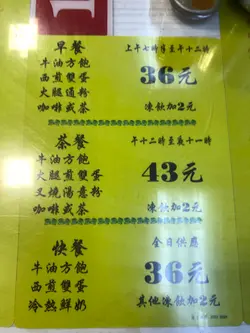 早餐 上午七時半至午十二時
牛油方飽
西煎雙蛋
火腿通粉
咖啡或茶
36元
凍飲加2元
茶餐 午十二時至夜十一時
牛油方飽
西煎雙蛋
叉燒湯意粉
咖啡或茶
43元
凍飲加2元
快餐 全日供應
牛油方飽
西煎雙蛋
冷熱鮮奶
36元
其他凍飲加2元